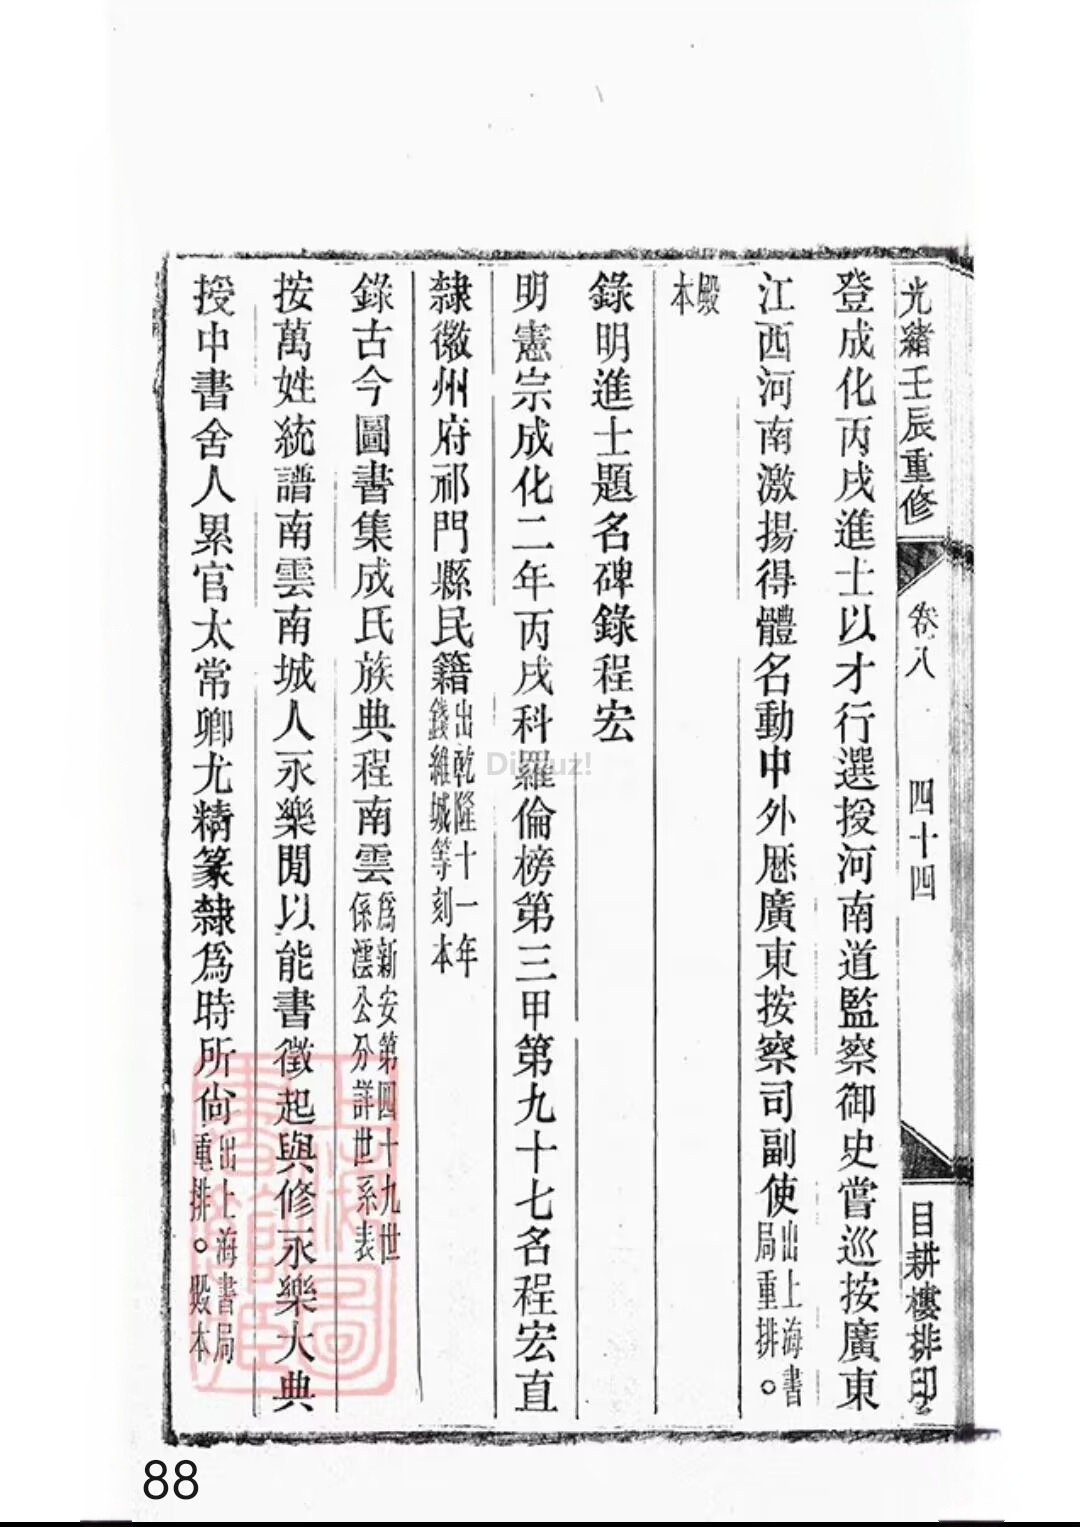 光緒壬辰重修 卷八 四十四 目耕樓排印
登成化丙戌進士以才行選授河南道監察御史嘗巡按廣東
江西河南激揚得體名動中外歷廣東按察司副使出上海書局重排。
殿本
錄明進士題名碑錄程宏
明憲宗成化二年丙戌科羅倫榜第三甲第九十七名程宏直
隸徽州府祁門縣民籍出乾隆十一年錢維城等刻本
錄古今圖書集成氏族典程南雲為新安第四十九世係澐公分詳世系表
按萬姓統譜南雲南城人永樂閒以能書徵起與修永樂大典
授中書舍人累官太常卿尤精篆隸為時所尙出上海書局重排。殿本
Discuz!
88